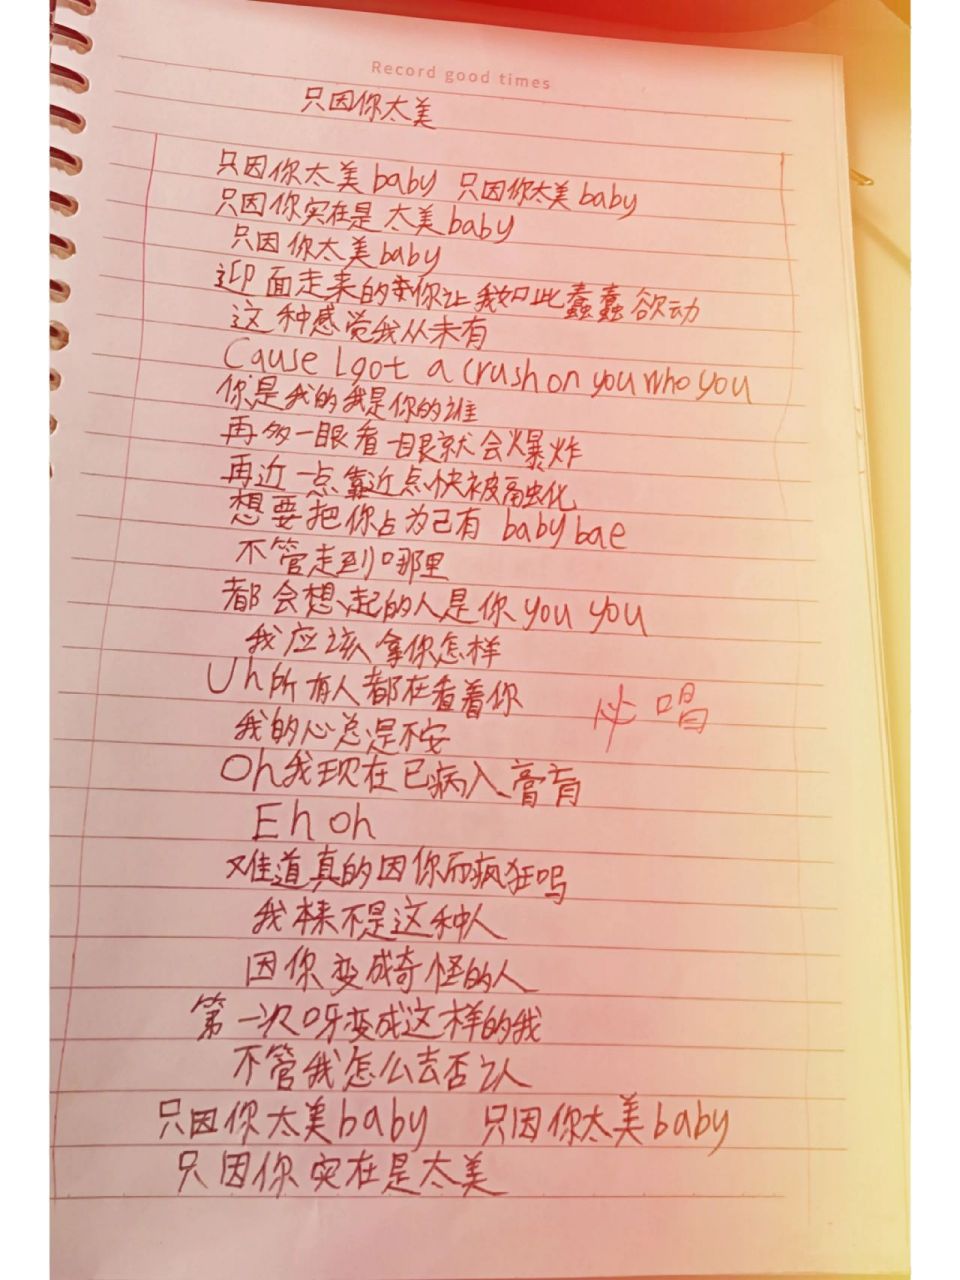 Record good times
只因你太美
只因你太美baby 只因你太美baby
只因你实在是太美baby
只因你太美baby
迎面走来的你让我如此蠢蠢欲动
这种感觉我从未有
Cause I got a crush on you who you
你是我的我是你的谁
再多一眼看一眼就会爆炸
再近一点靠近点快被融化
想要把你占为己有 baby bae
不管走到哪里
都会想起的人是你 you you
我应该拿你怎样
Uh所有人都在看着你
必唱
我的心总是不安
Oh我现在已病入膏肓
Eh oh
难道真的因你而疯狂吗
我本来不是这种人
因你变成奇怪的人
第一次呀变成这样的我
不管我怎么去否认
只因你太美baby 只因你太美baby
只因你实在是太美